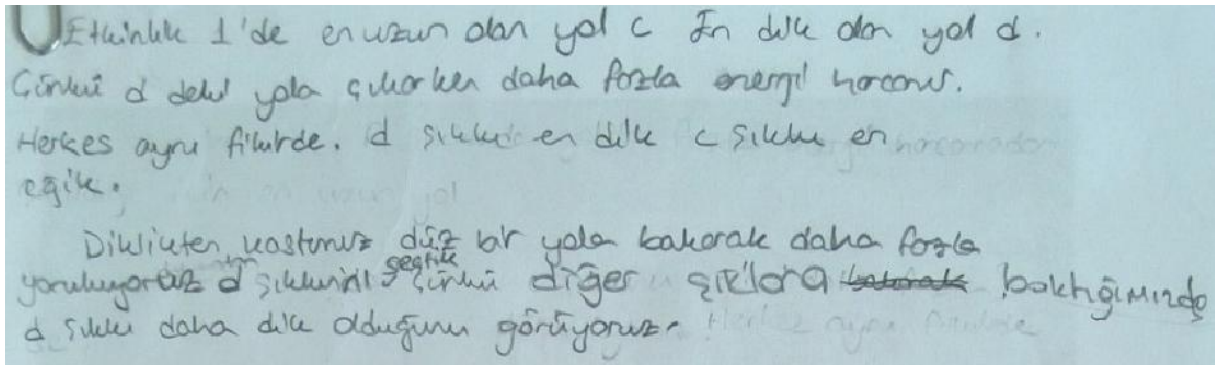 Etkinlik 1'de en uzun olan yol c En dik olan yol d.
Çünkü d deki yola çıkarken daha fazla enerji harcanır.
Herkes aynı fikirde. d şıkkı en dik c şıkkı en
eğik.
Diklikten kastımız düz bir yola bakarak daha fazla
yoruluyoruz d şıkkını seçtik çünkü diğer şıklara bakarak baktığımızda
d şıkkı daha dik olduğunu görüyoruz.